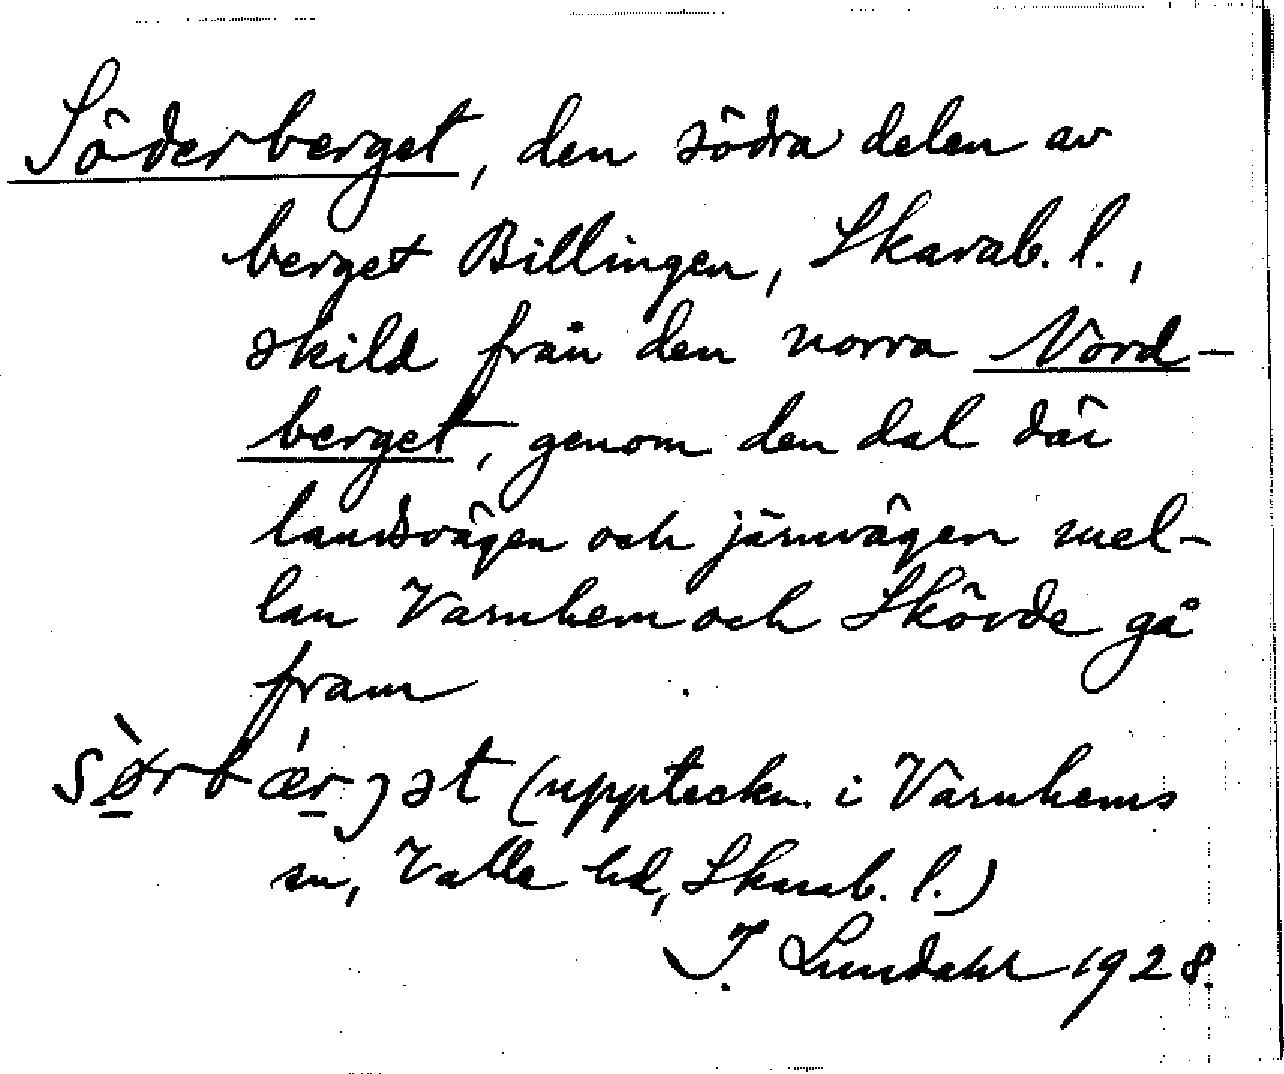 Söderberget, den södra delen av
berget Billingen, Skarab. l.,
skild från den norra Nord-
berget, genom den dal där
landsvägen och järnvägen mel-
lan Varnhem och Skövde gå
fram
(uppteckn. i Varnhems
sn, Valle hd, Skarab. l.)
I. Lundahl 1928.